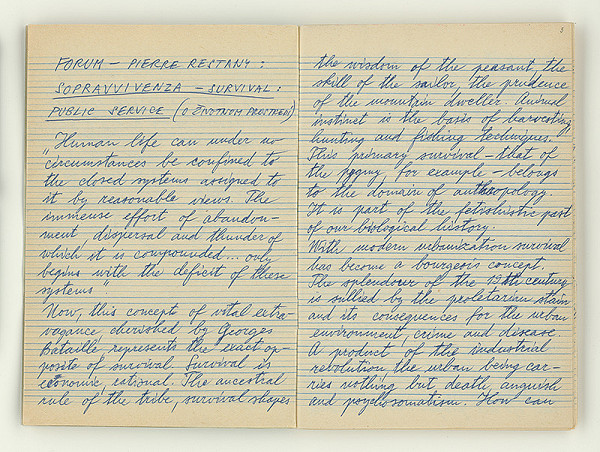 FORUM – PIERRE RESTANY:
SOPRAVVIVENZA – SURVIVAL:
PUBLIC SERVICE (O ŽIVOTNOM PROSTREDÍ)
„Human life can under no
circumstances be confined to
the closed systems assigned to
it by reasonable views. The
immense effort of abandon-
ment, dispersal and thunder of
which it is compounded... only
begins with the deficit of these
systems"
Now, this concept of vital extra-
vagance cherished by Georges
Bataille represents the exact op-
posite of survival. Survival is
economic, rational. The ancestral
rule of the tribe, survival shapes
3
the wisdom of the peasant, the
skill of the sailor, the prudence
of the mountain dweller. Animal
instinct is the basis of harvesting,
hunting and fishing techniques.
This primary survival – that of
the pygmy for example – belongs
to the domain of anthropology.
It is part of the fetishistic past
of our biological history.
With modern urbanization survival
has become a bourgeois concept.
The splendour of the 19th century
is sullied by the proletarian stain
and its consequences for the urban
environment, crime and disease.
A product of the industrial
revolution the urban being car-
ries nothing but death, anguish
and psychosomatism. How can